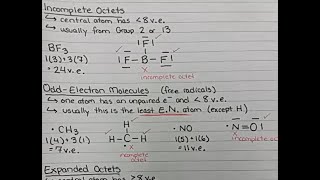 Incomplete Octets
↳ central atom has < 8 v.e.
↳ usually from Group 2 or 13
BF3
1(3) + 3(7)
= 24 v.e.
F
F - B - F
incomplete octet
Odd-Electron Molecules (free radicals)
↳ one atom has an unpaired e⁻ and < 8 v.e.
↳ usually this is the least E.N. atom (except H)
• CH3
1(4) + 3(1)
= 7 v.e.
H
H - C - H
incomplete octet
• NO
1(5) + 1(6)
= 11 v.e.
N = O
incomplete octet
Expanded Octets
↳ central atom has > 8 v.e.